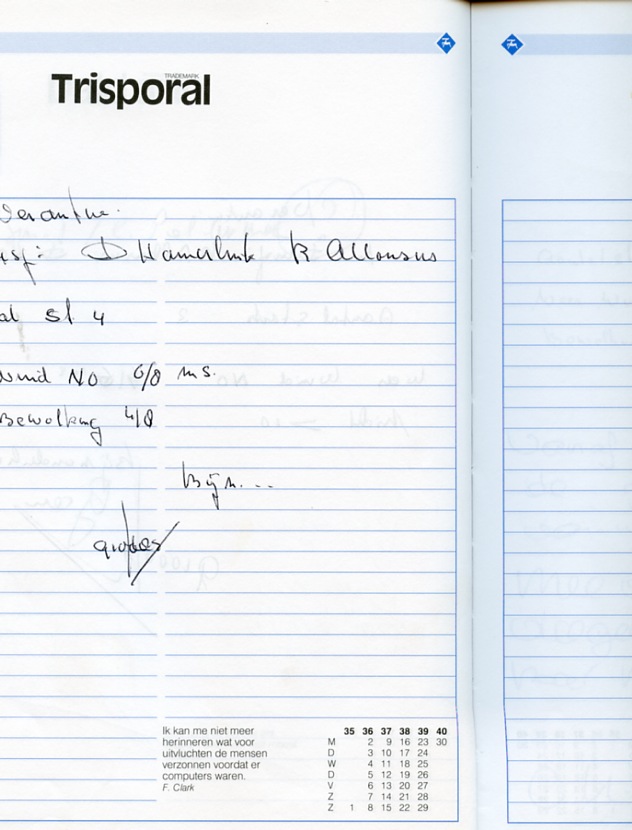 TRADEMARK
Trisporal
D Hamerlink R Allonsus
st 4
wind NO 6/8 ms.
Bewolking 4/8
Bijz. --
Ik kan me niet meer
herinneren wat voor
uitvluchten de mensen
verzonnen voordat er
computers waren.
F. Clark
35 36 37 38 39 40
M 2 9 16 23 30
D 3 10 17 24
W 4 11 18 25
D 5 12 19 26
V 6 13 20 27
Z 7 14 21 28
Z 1 8 15 22 29